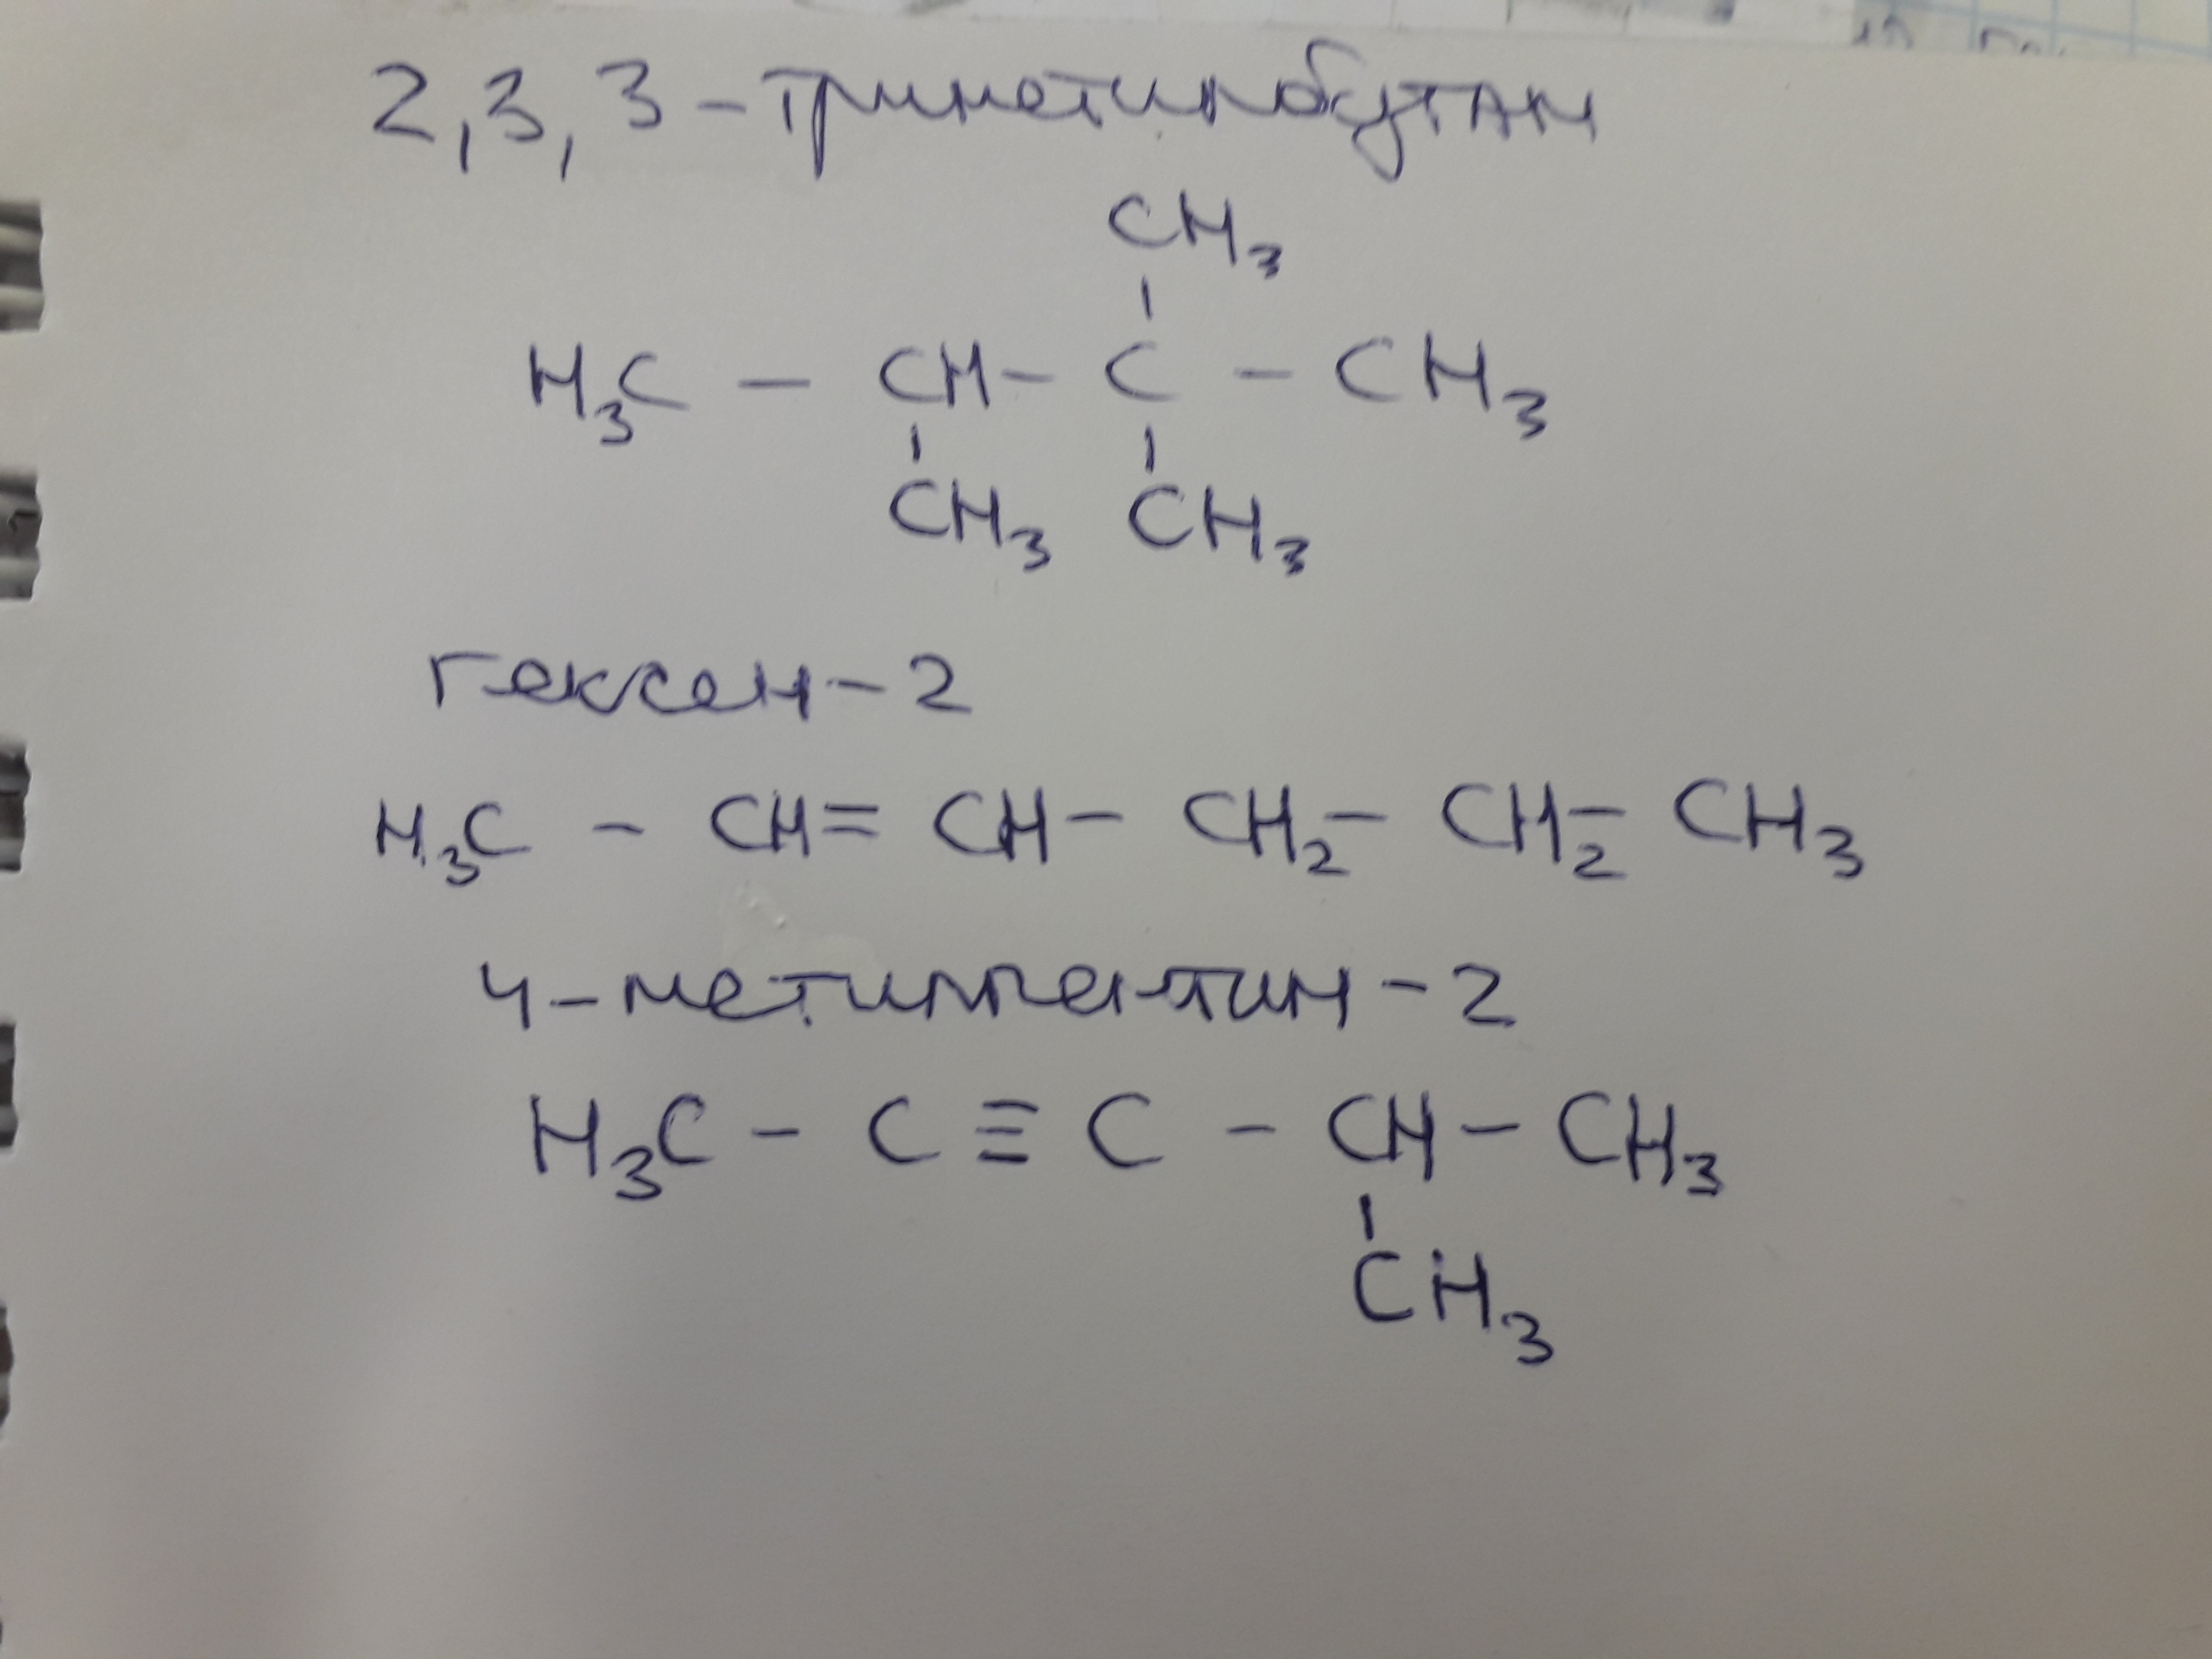 2,3,3-триметилбутан
CH3
H3C - CH - C - CH3
CH3 CH3
гексен-2
H3C - CH = CH - CH2 - CH2 - CH3
4-метилпентин-2
H3C - C ≡ C - CH - CH3
CH3